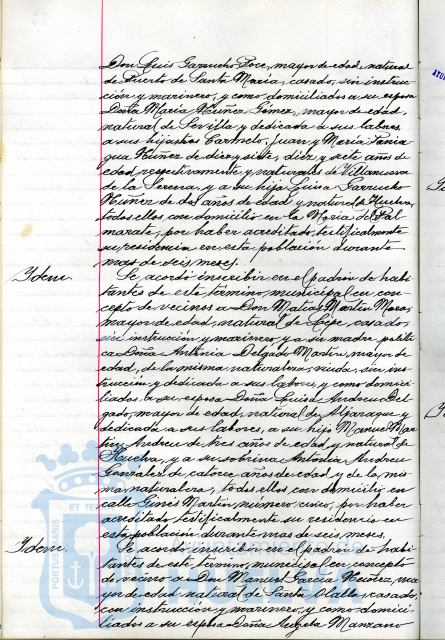 Don Luis Garrucho Poce, mayor de edad, natural
de Puerto de Santa María, casado, sin instruc-
ción y marinero, y como domiciliados a su esposa
Doña María Núñez Gómez, mayor de edad,
natural de Sevilla y dedicada a sus labores,
a sus hijastros Carmelo, Juan y María Pania
gua Núñez de diez y siete, diez y siete años de
edad respectivamente y naturales de Villanueva
de la Serena, y a su hija Luisa Garrucho
Núñez de dos años de edad y natural de Huelva,
todos ellos con domicilio en la María del Pal-
marate, por haber acreditado testificalmente
su residencia en esta población durante
mas de seis meses.
Idem. Se acordó inscribir en el padrón de habi-
tantes de este término municipal en con-
cepto de vecinos a Don Matías Martín Mora,
mayor de edad, natural de Lepe, casado,
sin instrucción y marinero, y a su madre politi
ca Doña Antonia Delgado Martín, mayor de
edad, de la misma naturaleza, viuda, sin ins-
trucción y dedicada a sus labores, y como domici-
liados a su esposa Doña Luisa Andreu Del-
gado, mayor de edad, natural de Aljaraque y
dedicada a sus labores, a su hijo Manuel Mar
tín Andreu de tres años de edad y natural de
Huelva, y a su sobrina Antonia Andreu
González de catorce años de edad y de la mis-
ma naturaleza, todos ellos con domicilio en
calle Ginés Martín, número cinco, por haber
acreditado testificalmente su residencia en
esta población durante mas de seis meses.
Idem. Se acordó inscribir en el padrón de habi-
tantes de este término municipal en concepto
de vecino a Don Manuel García Núñez, ma
yor de edad, natural de Santa Olalla, casado,
con instrucción y marinero, y como domici-
liados a su esposa Doña Angela Manzano
PORTUS MARIS ET TE